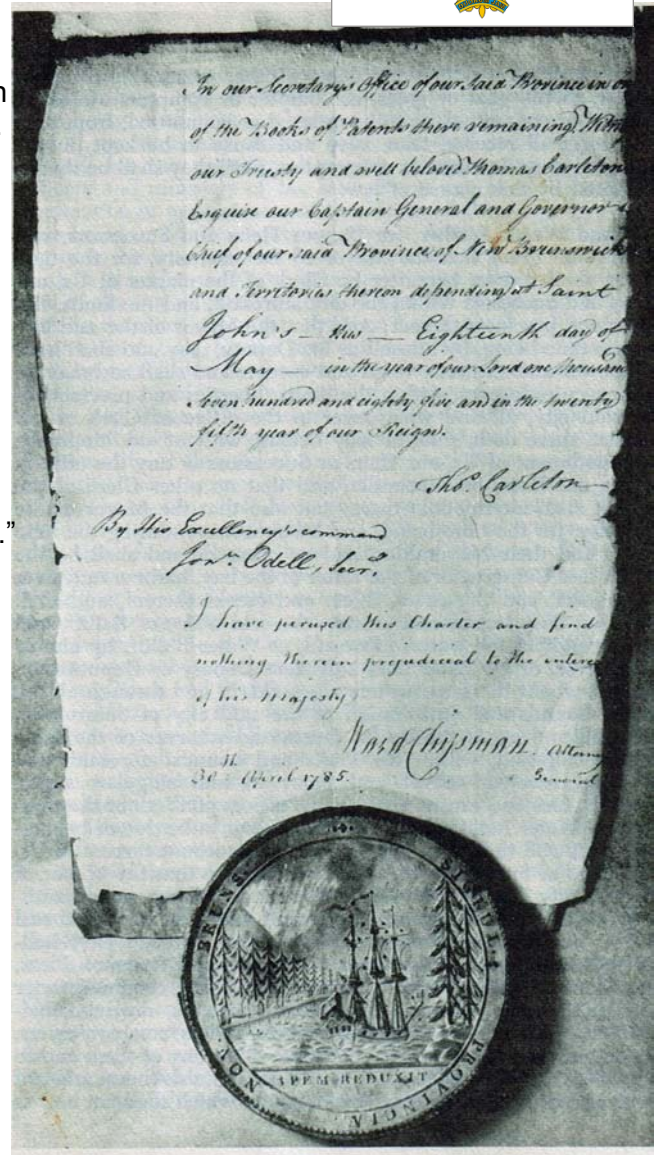 In our Secretary's Office of our said Province in
of the Books of Patents there remaining
our Trusty and well beloved Thomas Carleton
Esquire our Captain General and Governor
Chief of our said Province of New Brunswick
and Territories thereon depending at Saint
John's — this — Eighteenth day of
May — in the year of our Lord one thousand
Seven hundred and eighty five and in the twenty
fifth year of our Reign.
Tho.s Carleton
By His Excellency's command
Jon.n Odell, Secr.y
I have perused this Charter and find
nothing therein prejudicial to the
of his Majesty
Ward Chipman Attorney
30th April 1785. General
BRUNS. SIGILL.
NOV. PROVINCIÆ
SPEM REDUXIT